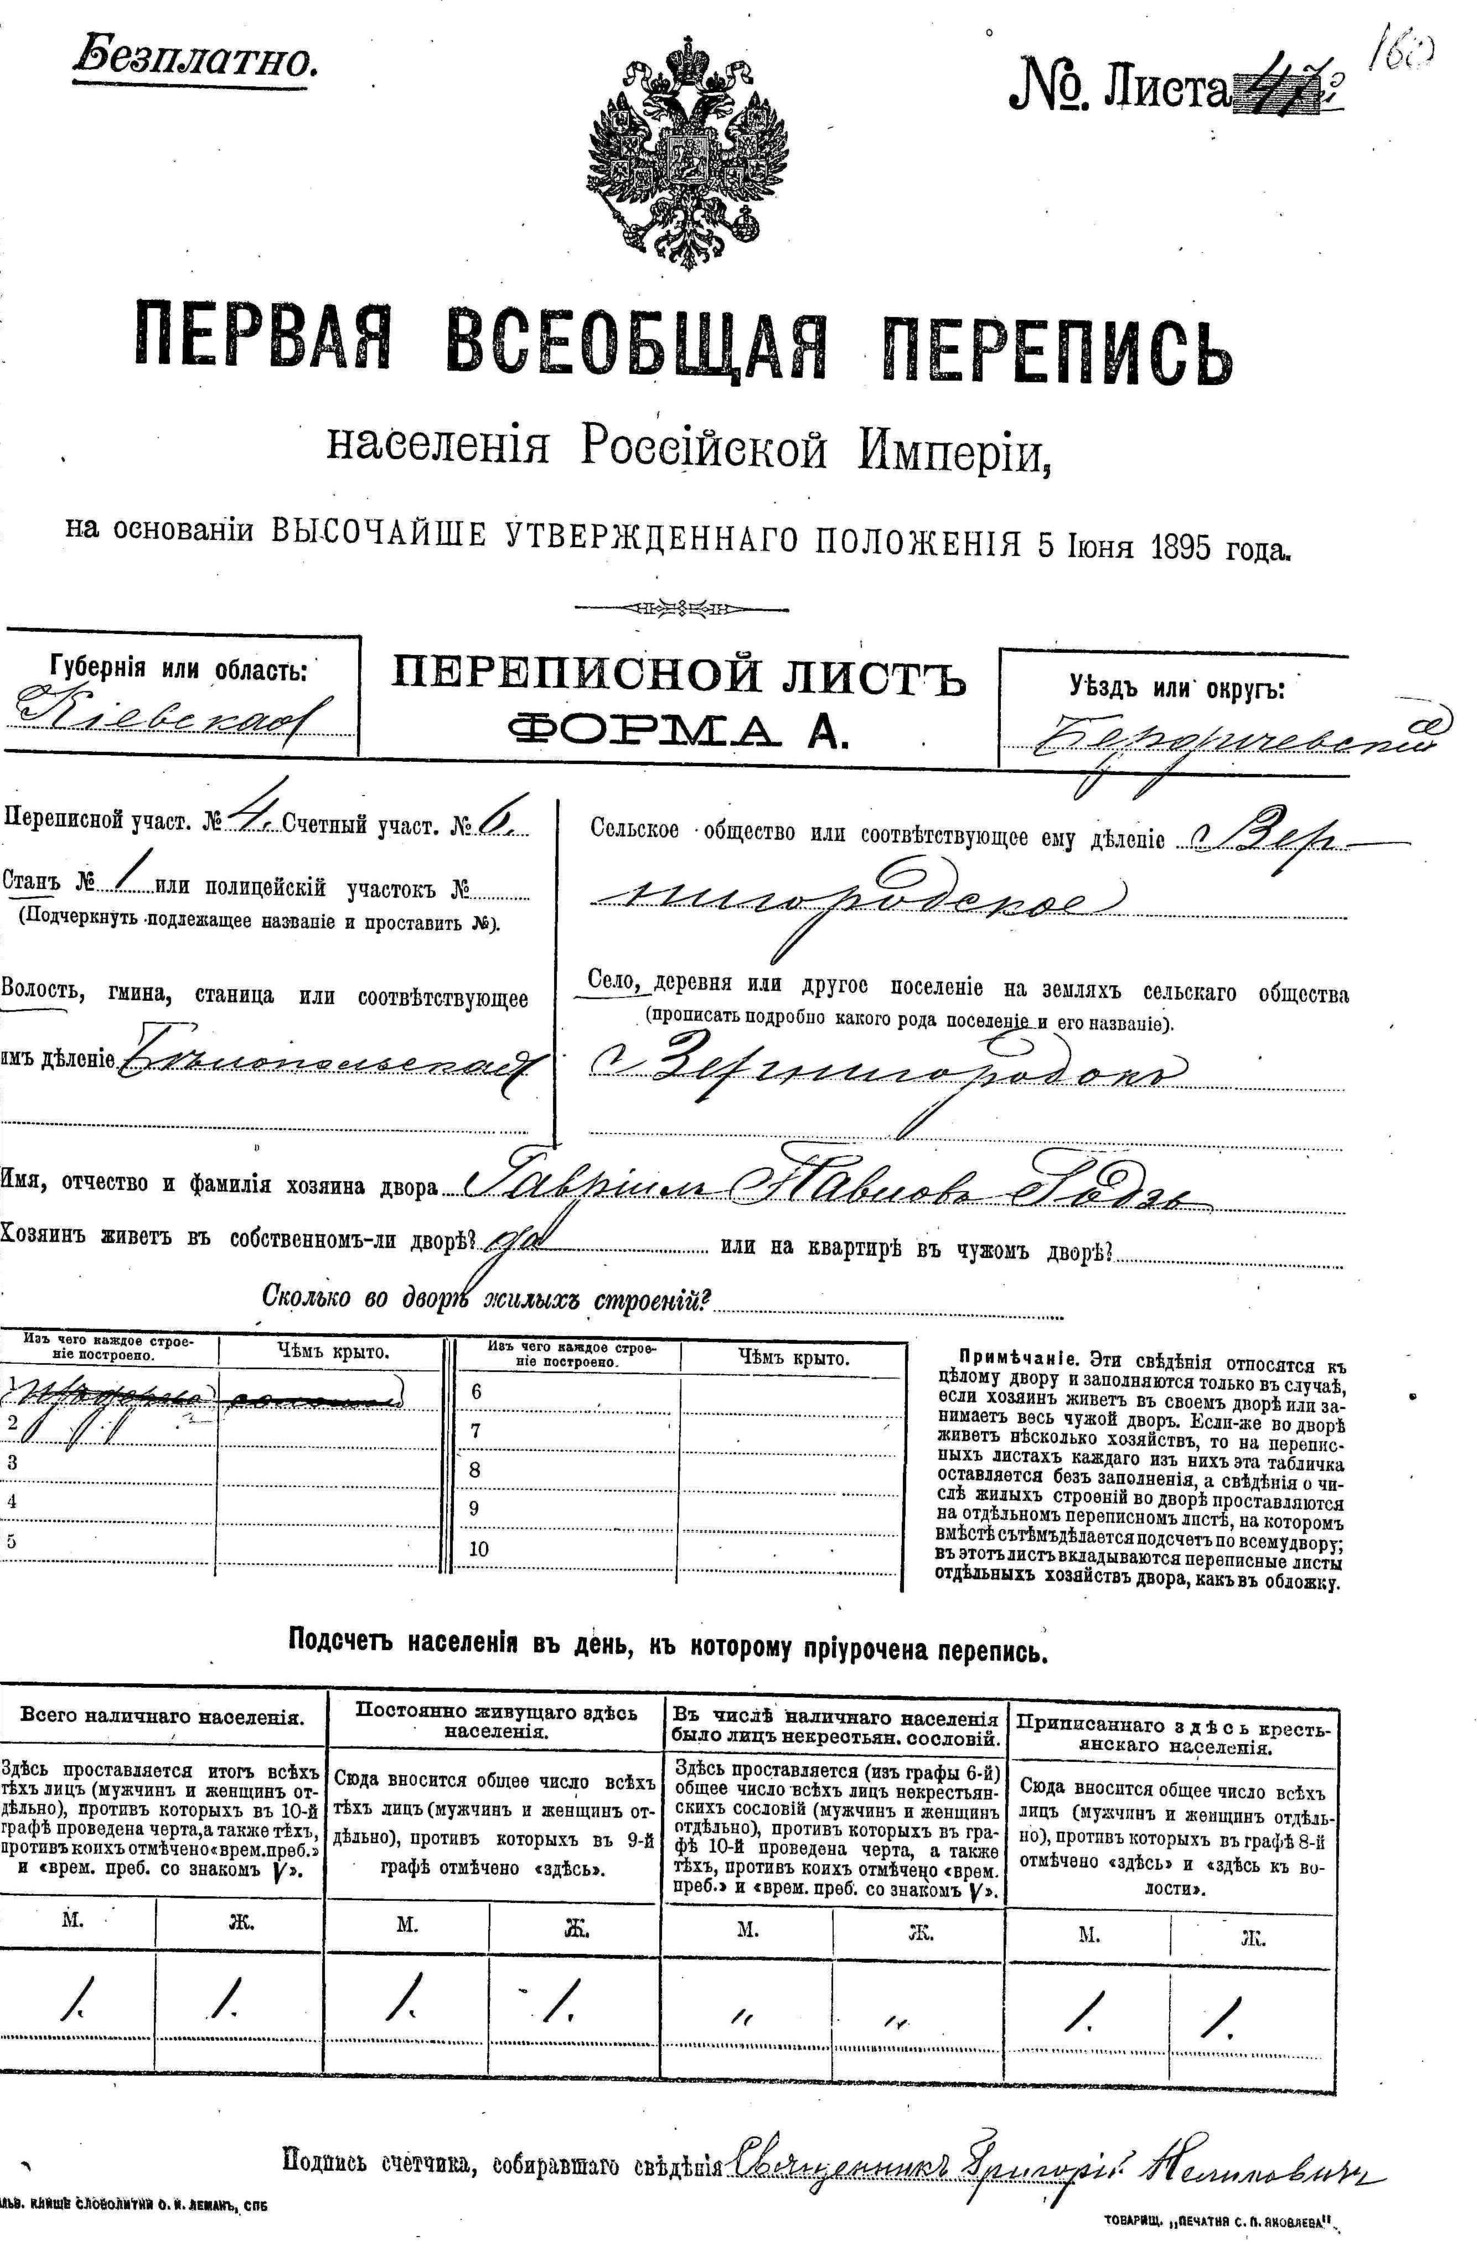 Безплатно.
№. Листа 47
160
ПЕРВАЯ ВСЕОБЩАЯ ПЕРЕПИСЬ
населенія Россійской Имперіи,
на основаніи ВЫСОЧАЙШЕ УТВЕРЖДЕННАГО ПОЛОЖЕНІЯ 5 Іюня 1895 года.
Губернія или область:
Кіевская
ПЕРЕПИСНОЙ ЛИСТЪ
ФОРМА А.
Уѣздъ или округъ:
Бердичевскій
Переписной участ. № 4. Счетный участ. № 6.
Станъ № 1 или полицейскій участокъ №
(Подчеркнуть подлежащее названіе и проставить №).
Волость, гмина, станица или соотвѣтствующее
имъ дѣленіе Бѣлопольская
Сельское общество или соотвѣтствующее ему дѣленіе Вер-
нигородское
Село, деревня или другое поселеніе на земляхъ сельскаго общества
(прописать подробно какого рода поселеніе и его названіе).
Вернигородокъ
Имя, отчество и фамилія хозяина двора Гавріилъ Павловъ Годзь
Хозяинъ живетъ въ собственномъ-ли дворѣ? да или на квартирѣ въ чужомъ дворѣ?
Сколько во дворѣ жилыхъ строеній?
Изъ чего каждое строе-
ніе построено.
Чѣмъ крыто.
Изъ чего каждое строе-
ніе построено.
Чѣмъ крыто.
1
2
3
4
5
6
7
8
9
10
Примѣчаніе. Эти свѣдѣнія относятся къ
цѣлому двору и заполняются только въ случаѣ,
если хозяинъ живетъ въ своемъ дворѣ или за-
нимаетъ весь чужой дворъ. Если-же во дворѣ
живетъ нѣсколько хозяйствъ, то на перепис-
ныхъ листахъ каждаго изъ нихъ эта табличка
оставляется безъ заполненія, а свѣдѣнія о чи-
слѣ жилыхъ строеній во дворѣ проставляются
на отдѣльномъ переписномъ листѣ, на которомъ
вмѣстѣ съ тѣмъ дѣлается подсчетъ по всему двору;
въ этотъ листъ вкладываются переписные листы
отдѣльныхъ хозяйствъ двора, какъ въ обложку.
Подсчетъ населенія въ день, къ которому пріурочена перепись.
Всего наличнаго населенія.
Здѣсь проставляется итогъ всѣхъ
тѣхъ лицъ (мужчинъ и женщинъ от-
дѣльно), противъ которыхъ въ 10-й
графѣ проведена черта, а также тѣхъ,
противъ коихъ отмѣчено «врем. преб.»
и «врем. преб. со знакомъ V».
Постоянно живущаго здѣсь
населенія.
Сюда вносится общее число всѣхъ
тѣхъ лицъ (мужчинъ и женщинъ от-
дѣльно), противъ которыхъ въ 9-й
графѣ отмѣчено «здѣсь».
Въ числѣ наличнаго населенія
было лицъ некрестьян. сословій.
Здѣсь проставляется (изъ графы 6-й)
общее число всѣхъ лицъ некрестьян-
скихъ сословій (мужчинъ и женщинъ
отдѣльно), противъ которыхъ въ гра-
фѣ 10-й проведена черта, а также
тѣхъ, противъ коихъ отмѣчено «врем.
преб.» и «врем. преб. со знакомъ V».
Приписаннаго здѣсь кресть-
янскаго населенія.
Сюда вносится общее число всѣхъ
лицъ (мужчинъ и женщинъ отдѣль-
но), противъ которыхъ въ графѣ 8-й
отмѣчено «здѣсь» и «здѣсь къ во-
лости».
М. Ж. М. Ж. М. Ж. М. Ж.
1. 1. 1. 1. „ „ 1. 1.
Подпись счетчика, собиравшаго свѣдѣнія Священникъ Григорій
КЛИШЕ СЛОВОЛИТНИ О. И. ЛЕМАНЪ, СПБ
ТОВАРИЩ. „ПЕЧАТНЯ С. П. ЯКОВЛЕВА".